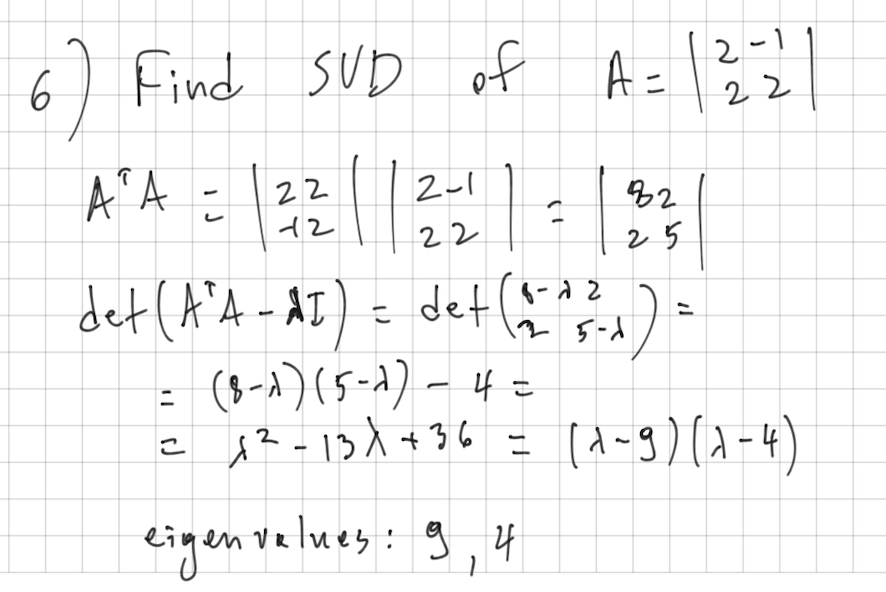 6) Find SVD of A = |2 -1|
|2 2|
AᵀA = |2 2| |2 -1| = |8 2|
|-1 2| |2 2| |2 5|
det(AᵀA - λI) = det(8-λ 2) =
(2 5-λ)
= (8-λ)(5-λ) - 4 =
= λ² - 13λ + 36 = (λ-9)(λ-4)
eigenvalues: 9, 4